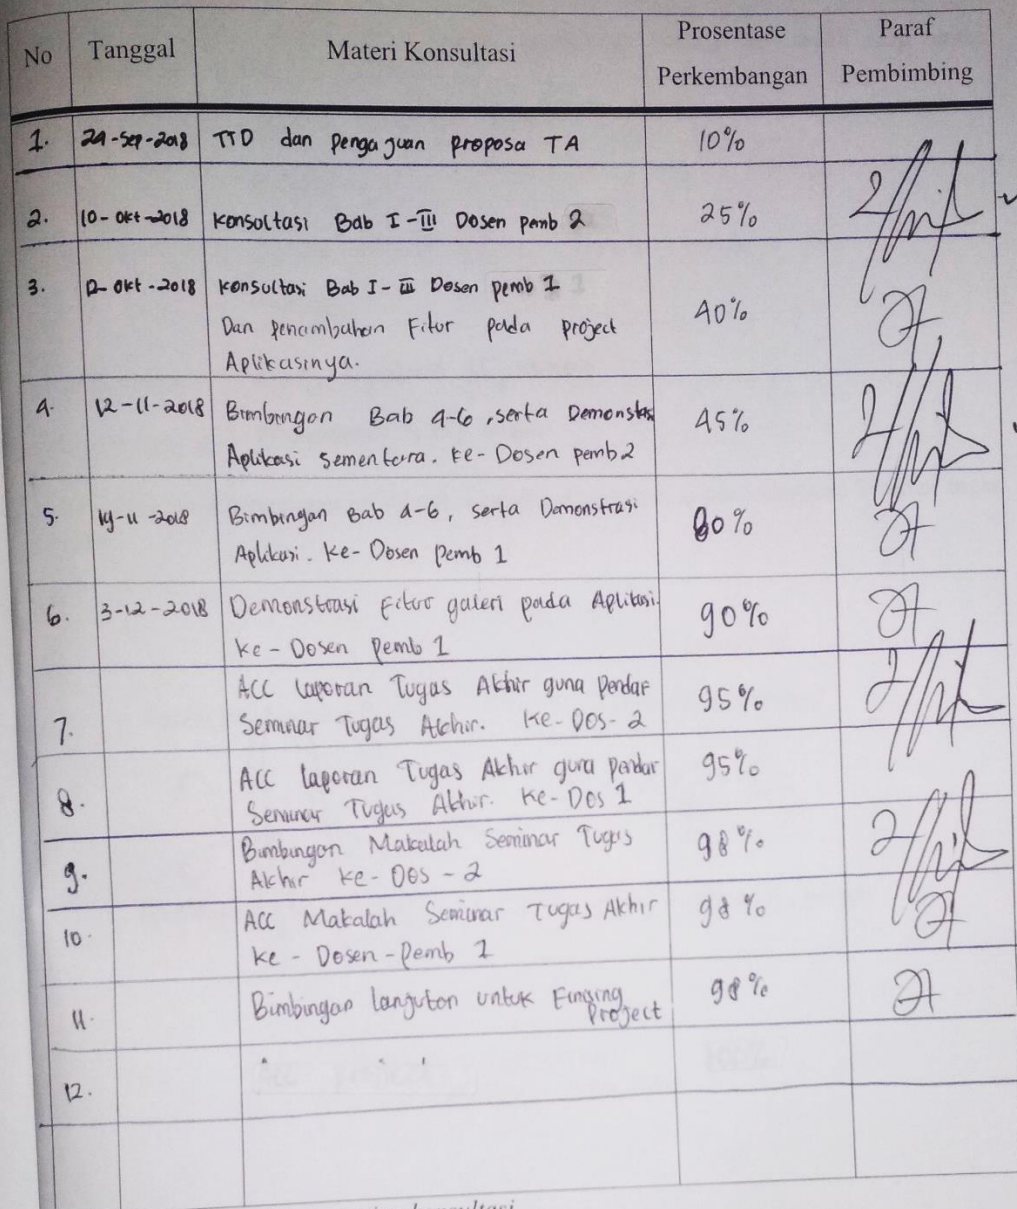 No Tanggal Materi Konsultasi Prosentase Perkembangan Paraf Pembimbing
1. 24-Sep-2018 TTD dan pengajuan proposa TA 10%
2. 10-Okt-2018 Konsultasi Bab I-III Dosen pemb 2 25%
3. 12-Okt-2018 Konsultasi Bab I-III Dosen pemb 1 40%
Dan penambahan Fitur pada project
Aplikasinya.
4. 12-11-2018 Bimbingan Bab 4-6, serta Demonstras 45%
Aplikasi sementara. ke-Dosen pemb 2
5. 19-11-2018 Bimbingan Bab 4-6, serta Demonstrasi 80%
Aplikasi. Ke-Dosen Pemb 1
6. 3-12-2018 Demonstrasi Fitur galeri pada Aplikasi. 90%
ke-Dosen Pemb 1
7. ACC Laporan Tugas Akhir guna Pendaf 95%
Seminar Tugas Akhir. Ke-Dos-2
8. ACC Laporan Tugas Akhir guna Pendaf 95%
Seminar Tugas Akhir. Ke-Dos 1
9. Bimbingan Makalah Seminar Tugas 98%
Akhir Ke-Dos-2
10. ACC Makalah Seminar Tugas Akhir 98%
ke-Dosen-Pemb 1
11. Bimbingan Lanjutan untuk Finging 98%
Project
12.